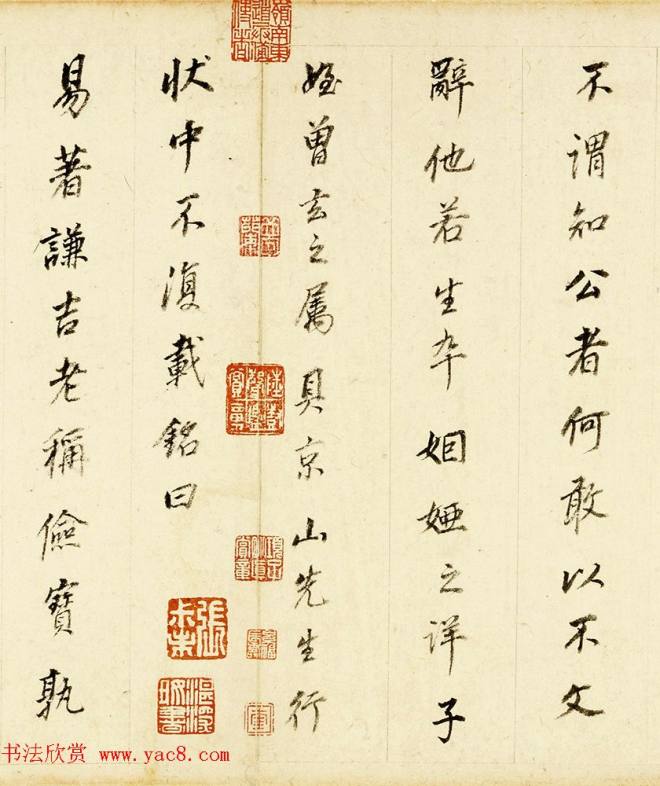 不謂知公者何敢以不文
辭他若生卒姻婭之詳子
姪曾玄之属具京山先生行
状中不復載銘曰
易著謙吉老稱儉寶孰
书法欣赏 www.yac8.com